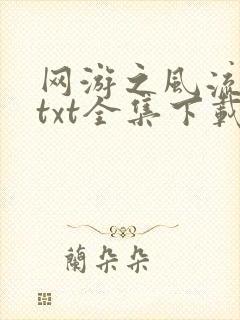 网游之风流
txt全集下载
蘭朵朵